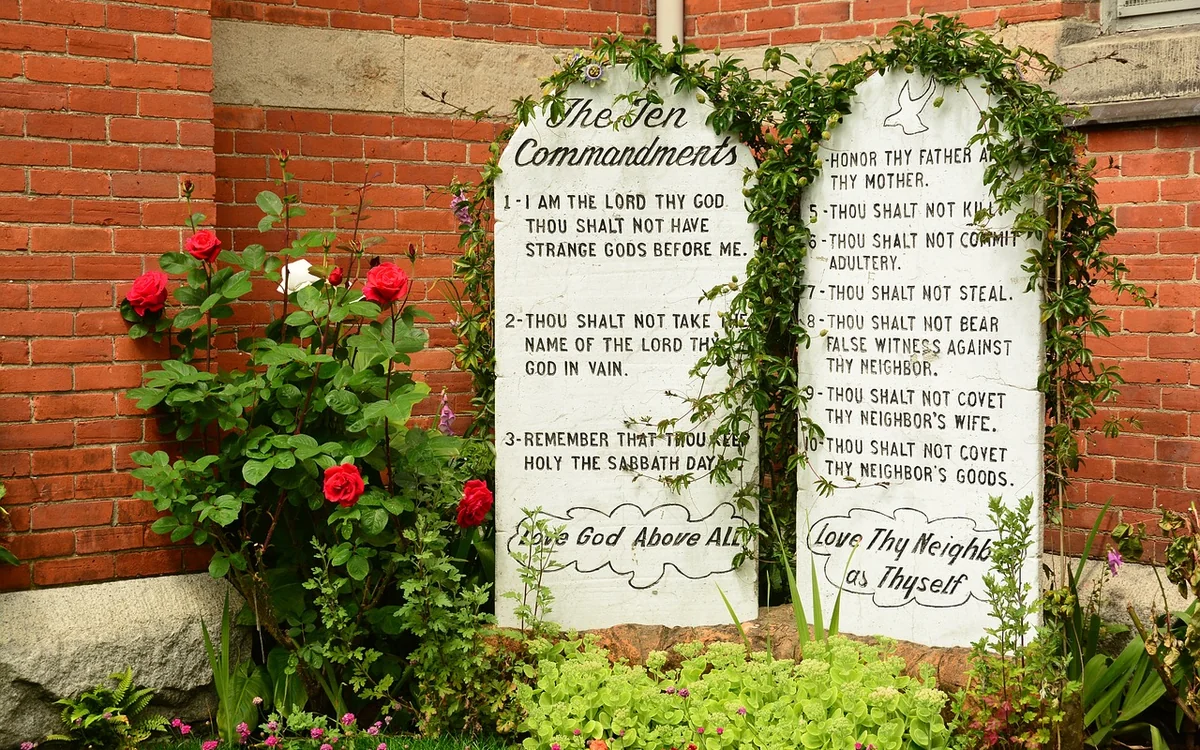 The Ten
Commandments
1 - I AM THE LORD THY GOD
THOU SHALT NOT HAVE
STRANGE GODS BEFORE ME.
2 - THOU SHALT NOT TAKE THE
NAME OF THE LORD THY
GOD IN VAIN.
3 - REMEMBER THAT THOU KEEP
HOLY THE SABBATH DAY
Love God Above All
- HONOR THY FATHER A
THY MOTHER.
5 - THOU SHALT NOT KILL
6 - THOU SHALT NOT COMMIT
ADULTERY.
7 - THOU SHALT NOT STEAL.
8 - THOU SHALT NOT BEAR
FALSE WITNESS AGAINST
THY NEIGHBOR.
9 - THOU SHALT NOT COVET
THY NEIGHBOR'S WIFE.
10 - THOU SHALT NOT COVET
THY NEIGHBOR'S GOODS.
Love Thy Neighb
as Thyself